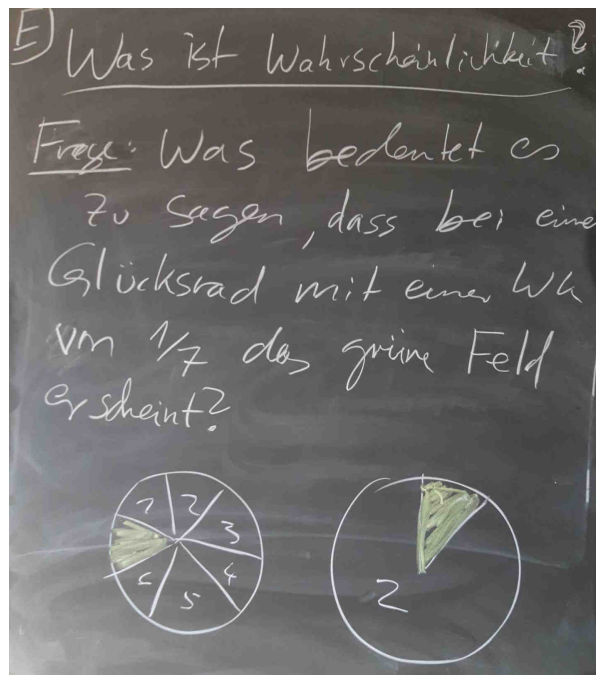 E) Was ist Wahrscheinlichkeit?
Frage: Was bedeutet es
zu sagen, dass bei eine
Glücksrad mit einer Wk
von 1/7 das grüne Feld
erscheint?
1 2 3 4 5 6
2